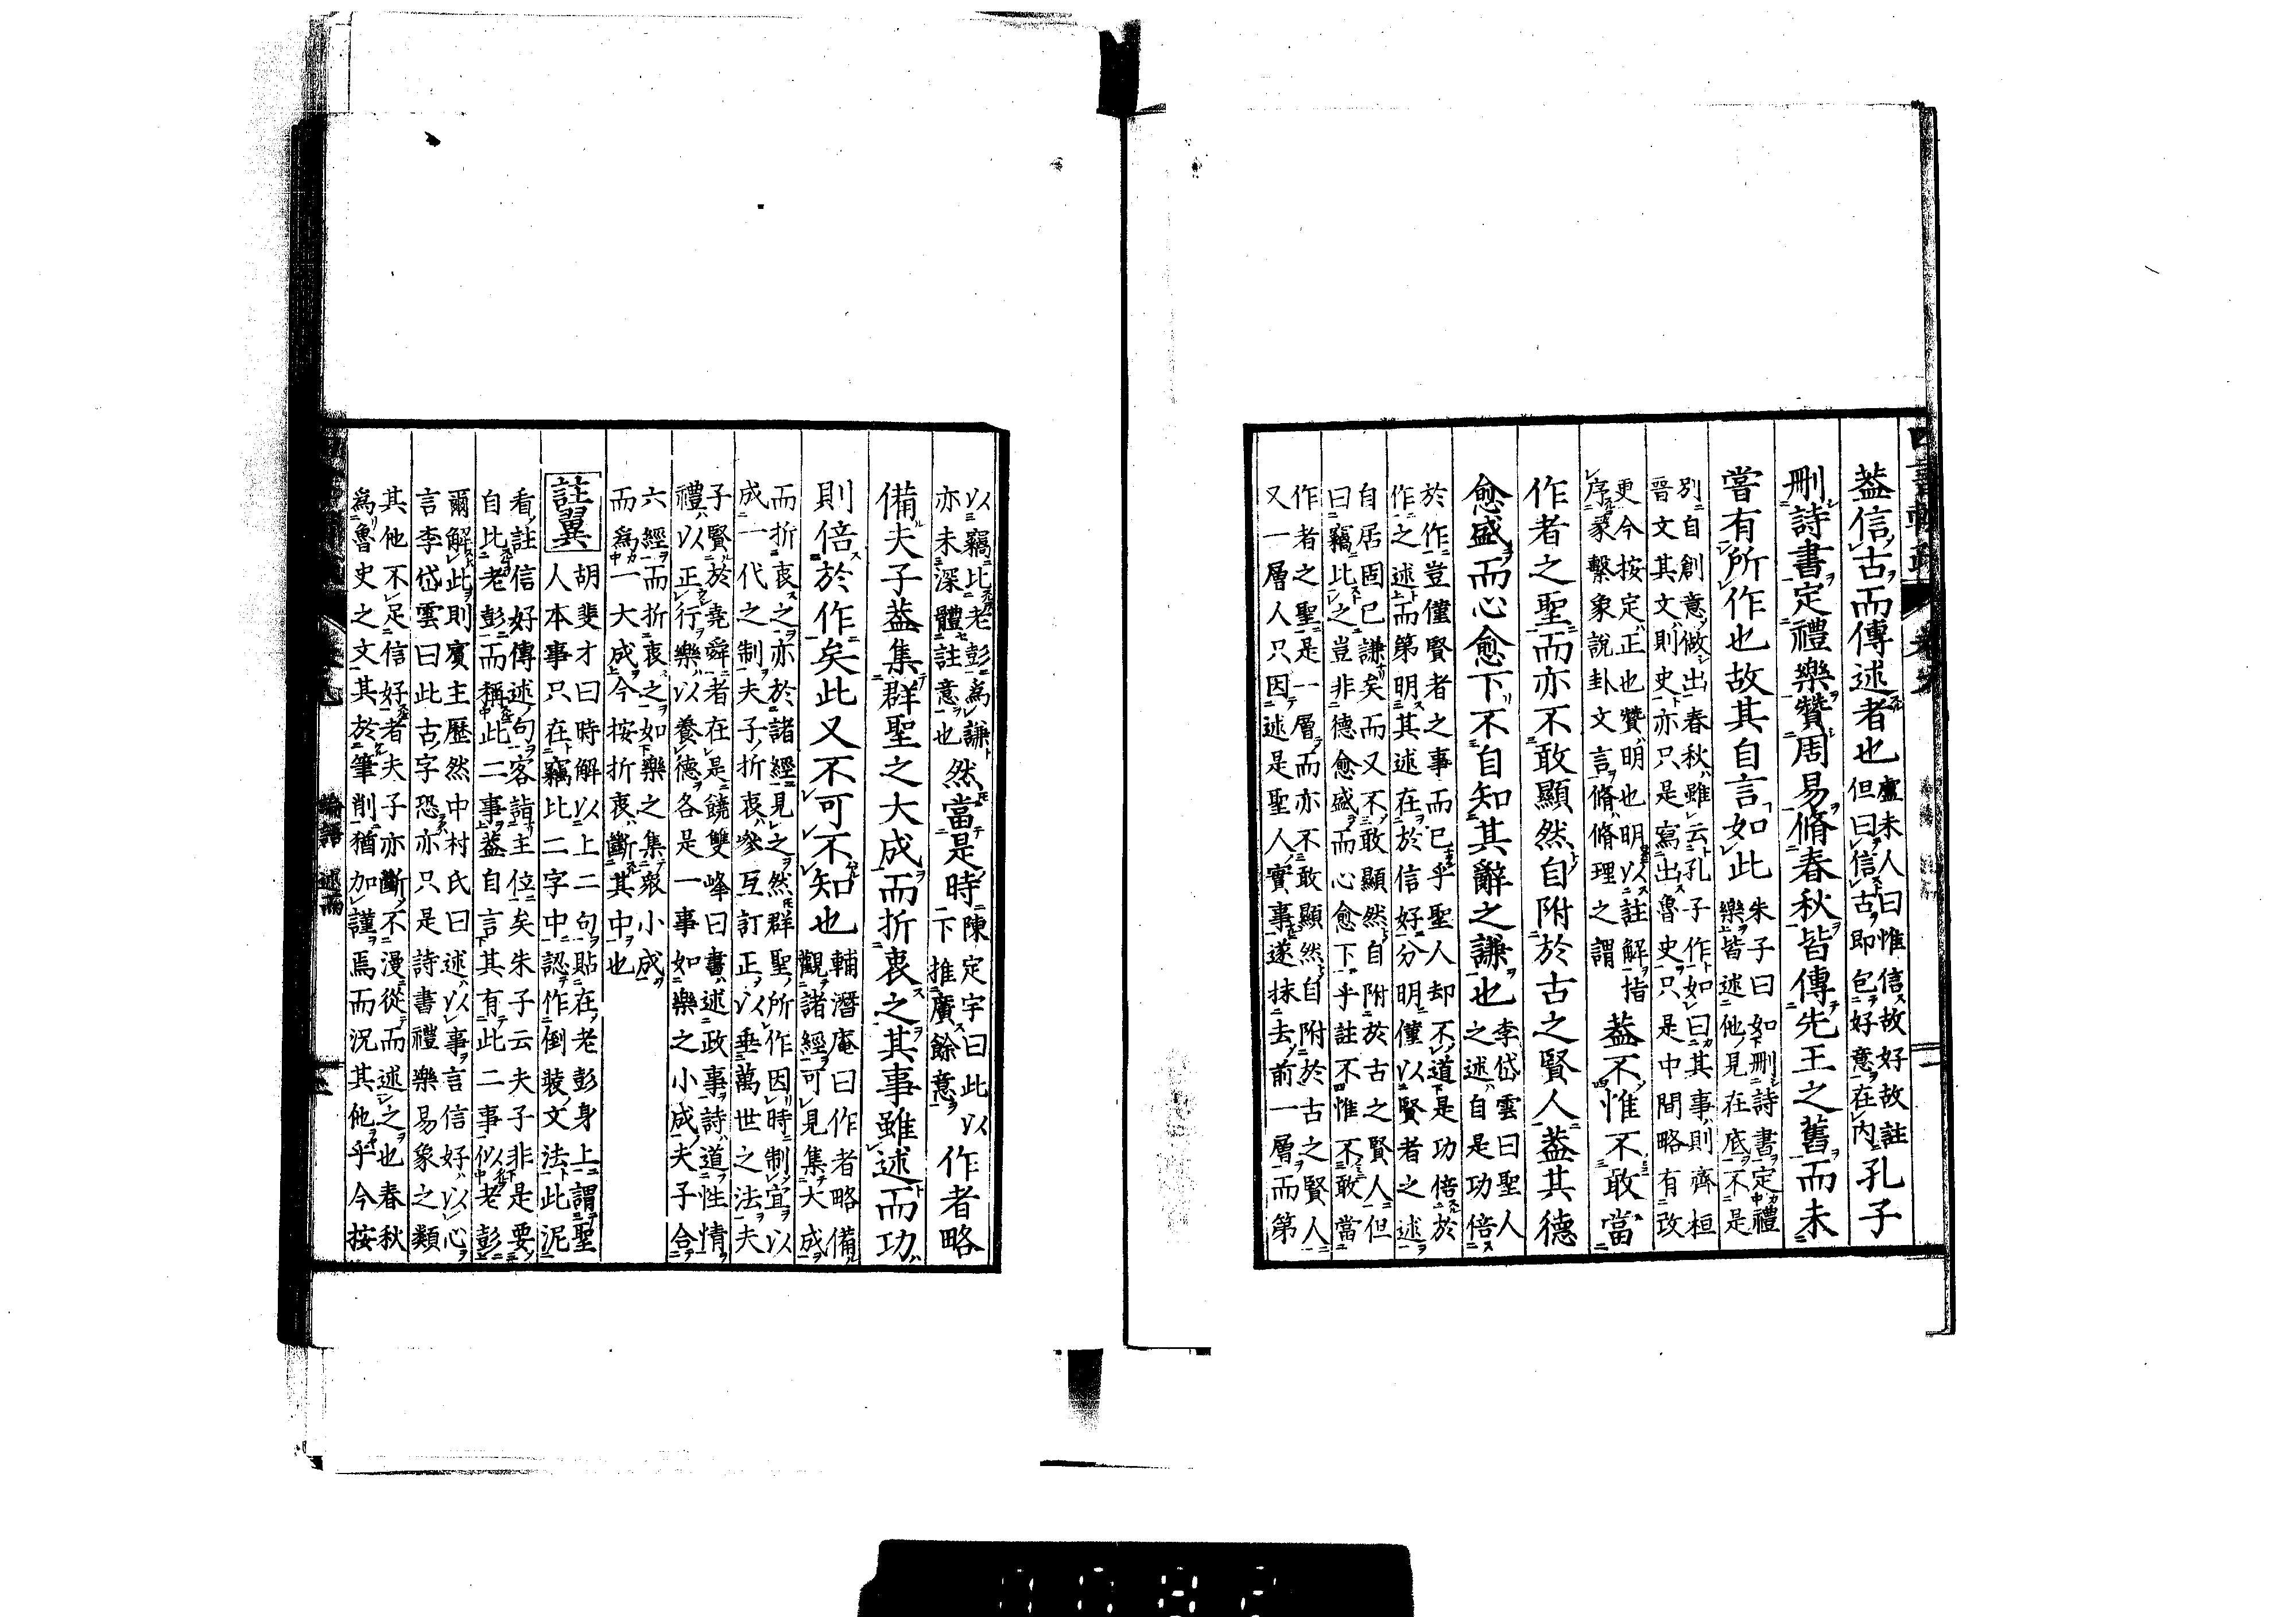 蓋信古而傳述者也
盧未人曰惟信故好故註
但曰信古即包好意在內
孔子
刪詩書定禮樂贊周易脩春秋皆傳先王之舊而未
嘗有所作也故其自言如此
朱子曰如刪詩書定禮
樂皆述他見在底不是
別自創意做出春秋雖云孔子作如曰其事則齊桓
晉文其文則史亦只是寫出魯史只是中間略有改
更今按定正也贊明也明以註解指
序彖繫象說卦文言脩脩理之謂
蓋不惟不敢當
作者之聖而亦不敢顯然自附於古之賢人蓋其德
愈盛而心愈下不自知其辭之謙也
李岱雲曰聖人
之述自是功倍
於作豈僅賢者之事而已乎聖人却不道是功倍於
作之述而第明其述在於信好分明僅以賢者之述
自居固已謙矣而又不敢顯然自附於古之賢人但
曰竊比之豈非德愈盛而心愈下乎註不惟不敢當
作者之聖是一層而亦不敢顯然自附於古之賢人
又一層人只因述是聖人實事遂抹去前一層而第
以竊比老彭為謙
亦未深體註意也
然當是時
陳定宇曰此以
下推廣餘意
作者略
備夫子蓋集群聖之大成而折衷之其事雖述而功
則倍於作矣此又不可不知也
輔潛庵曰作者略備
觀諸經可見集大成
而折衷之亦於諸經見之然群聖所作因時制宜以
成一代之制夫子折衷參互訂正以垂萬世之法夫
子賢於堯舜者在是饒雙峰曰書述政事詩道性情
禮以正行樂以養德各是一事如樂之小成夫子合
六經而折衷之如樂之集衆小成
而為一大成今按折衷斷其中也
註翼
胡斐才曰時解以上二句貼在老彭身上謂聖
人本事只在竊比二字中認作倒裝文法此泥
看註信好傳述句客詣主位矣朱子云夫子非是要
自比老彭而稱此二事蓋自言其有此二事似老彭
爾解此則賓主歷然中村氏曰述以事言信好以心
言李岱雲曰此古字恐亦只是詩書禮樂易象之類
其他不足信好者夫子亦斷不漫從而述之也春秋
為魯史之文其於筆削猶加謹焉而況其他乎今按
論語 述而